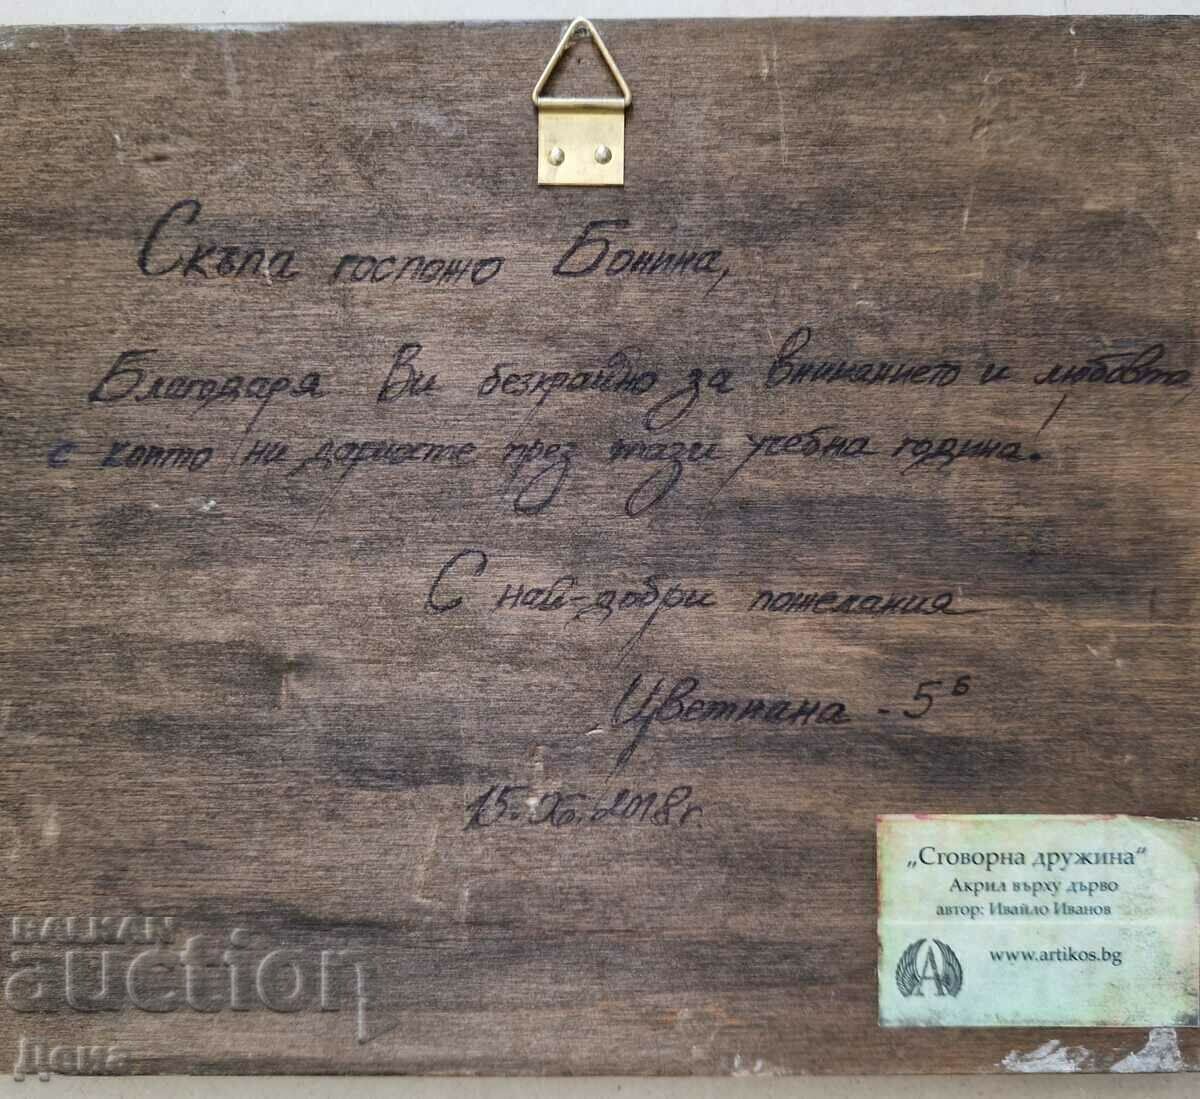 Скъпа госпожо Бонина,
Благодаря Ви безкрайно за вниманието и любовта,
с която ни дарихте през тази учебна година!
С най-добри пожелания
Цветиана - 5б
15. 2018г.
„Сговорна дружина“
Акрил върху дърво
автор: Ивайло Иванов
www.artikos.bg
BALKAN
auction
Дена